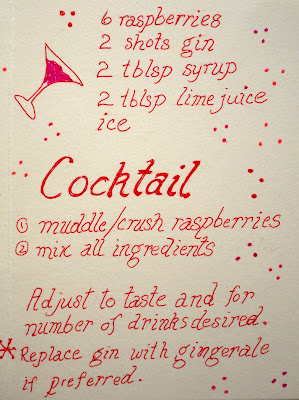 6 raspberries
2 shots gin
2 tblsp syrup
2 tblsp lime juice
ice
Cocktail
① muddle/crush raspberries
② mix all ingredients
Adjust to taste and for
number of drinks desired.
* Replace gin with gingerale
if preferred.